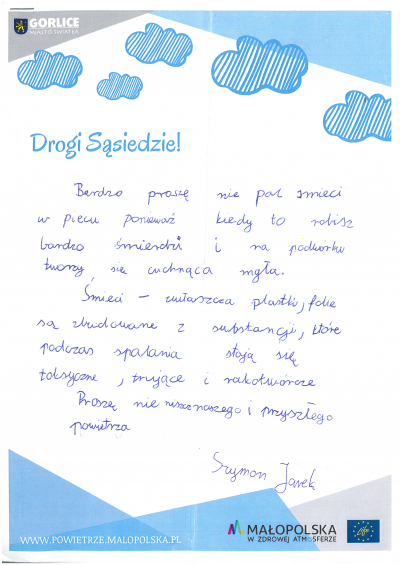 GORLICE
MIASTO ŚWIATŁA
Drogi Sąsiedzie!
Bardzo proszę nie pal śmieci
w piecu ponieważ kiedy to robisz
bardzo śmierdzi i na podwórku
tworzy się cuchnąca mgła.
Śmieci – zwłaszcza plastiki, folie
są zbudowane z substancji, które
podczas spalania stają się
toksyczne, trujące i rakotwórcze
Proszę nie niszcz naszego i przyszłego
powietrza
Szymon Jarek
WWW.POWIETRZE.MALOPOLSKA.PL
MAŁOPOLSKA
W ZDROWEJ ATMOSFERZE